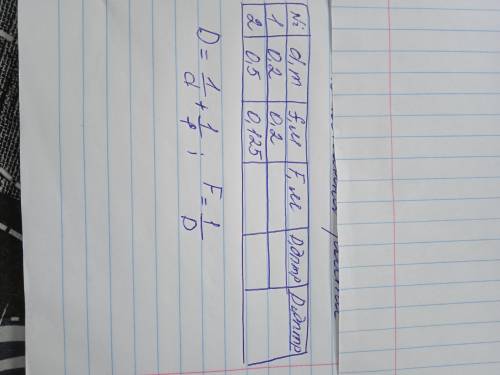 № d, м f, м F, м D, дптр Dср, дптр
1 0,2 0,2
2 0,5 0,125
D = 1/d + 1/f ; F = 1/D